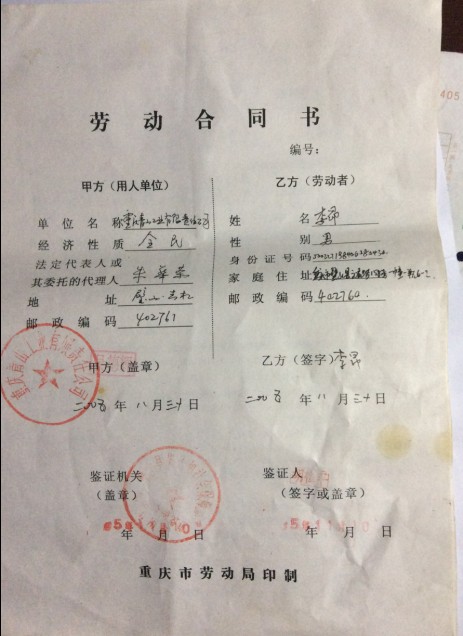 劳动合同书
编号:
甲方（用人单位）
单位名称
经济性质 全民
法定代表人或
其委托的代理人
地址
邮政编码 402761
乙方（劳动者）
姓名 李昂
性别 男
身份证号码
家庭住址
邮政编码 402760.
甲方（盖章）
二00五年八月三十日
乙方（签字）李昂
二00五年八月三十日
鉴证机关
（盖章）
年 月 日
鉴证人
（签字或盖章）
年 月 日
重庆市劳动局印制
405